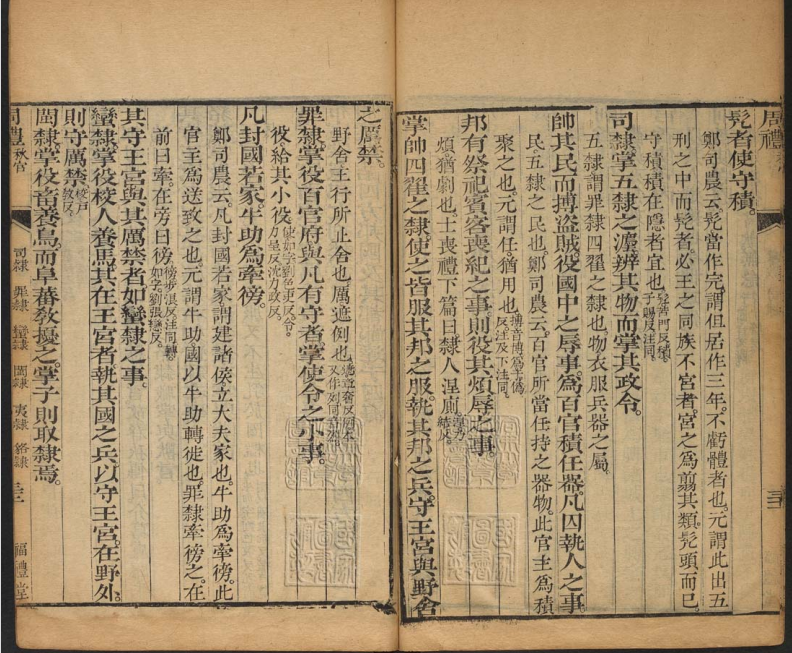 周禮
髡者使守積。
鄭司農云。髡當作完。謂但居作三年。不虧體者也。元謂此出五
刑之中而髡者。必王之同族不宮者。宮之為翦其類。髡頭而已。
守積積在隱者宜也。髡苦門反積。子賜反注同。
司隸掌五隸之灋。辨其物而掌其政令。
五隸謂罪隸四翟之隸也。物衣服兵器之屬。
帥其民而搏盜賊。役國中之辱事。為百官積任器。凡囚執人之事。
民五隸之民也。鄭司農云。百官所當任持之器物。此官主為積
聚之也。元謂任。猶用也。反注及下注同。
邦有祭祀賓客喪紀之事。則役其煩辱之事。
煩猶劇也。士喪禮下篇曰隸人涅廁。
掌帥四翟之隸。使之皆服其邦之服。執其邦之兵。守王宮與野舍
之厲禁。
野舍王行所止舍也。厲遮例也。
罪隸掌役百官府與凡有守者。掌使令之小事。
役。給其小役。
凡封國若家。牛助為牽徬。
鄭司農云。凡封國若家。謂建諸侯立大夫家也。牛助為牽徬。此
官主為送致之也。元謂牛助。國以牛助轉徙也。罪隸牽徬之。在
前曰牽。在旁曰徬。
其守王宮與其厲禁者。如蠻隸之事。
蠻隸掌役校人養馬。其在王宮者。執其國之兵以守王宮。在野外。
則守厲禁。校戶教反。
閩隸掌役畜養鳥。而阜蕃教擾之。掌子則取隸焉。
周禮 秋官
司隸 罪隸 蠻隸 閩隸 夷隸 貉隸
福禮堂